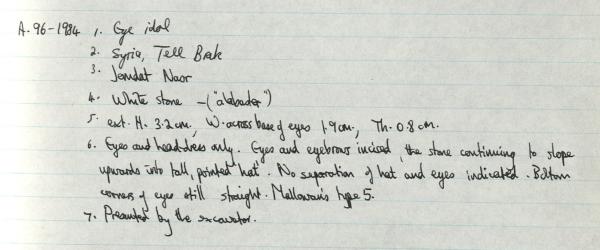 A.96-1984 1. Eye idol
2. Syria, Tell Brak
3. Jemdat Nasr
4. White stone - ("alabaster")
5. ext. H. 3.2 cm, W. across base of eyes 1.9 cm, Th. 0.8 cm.
6. Eyes and head-dress only. Eyes and eyebrows incised, the stone continuing to slope
upwards into tall, pointed 'hat'. No separation of hat and eyes indicated. Bottom
corners of eyes still straight. Mallowan's type 5.
7. Presented by the excavator.